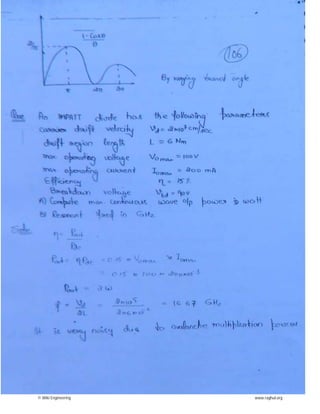 1-Cosθ
θ
π 2π 3π
106
By varying transit angle
Ques An IMPATT diode has the following parameters
carrier drift velocity Vd = 2×10⁷ cm/sec
drift region length L = 6 μm
max. operating voltage Vomax = 100V
max. operating current Iomax = 200 mA
Efficiency η = 15%
Breakdown voltage Vbd = 90V
A) Compute max. continuous wave o/p power in watt
B) Resonant freq in GHz
Soln
η = Pout
Pdc
Pout = ηPdc = 0.15 × Vomax × Iomax
= 0.15 × 100 × 200×10⁻³
Pout = 3W
f = Vd/2L = 2×10⁵/2×6×10⁻⁶ = 16.67 GHz
It is very noisy due to avalanche multiplication process
© Wiki Engineering www.raghul.org